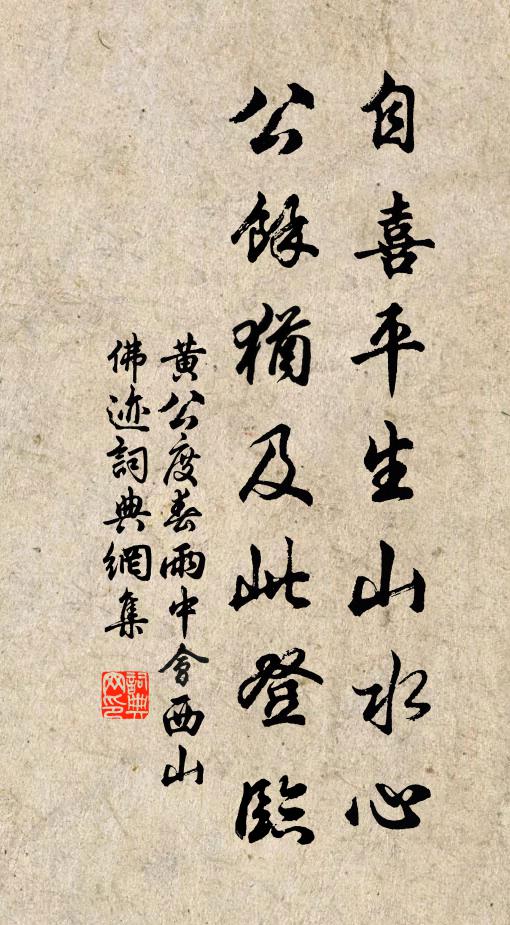 自喜平生山水心
公餘猶及此登臨
黃公度春雨中會西山
佛迹詞典網集
詞典網印